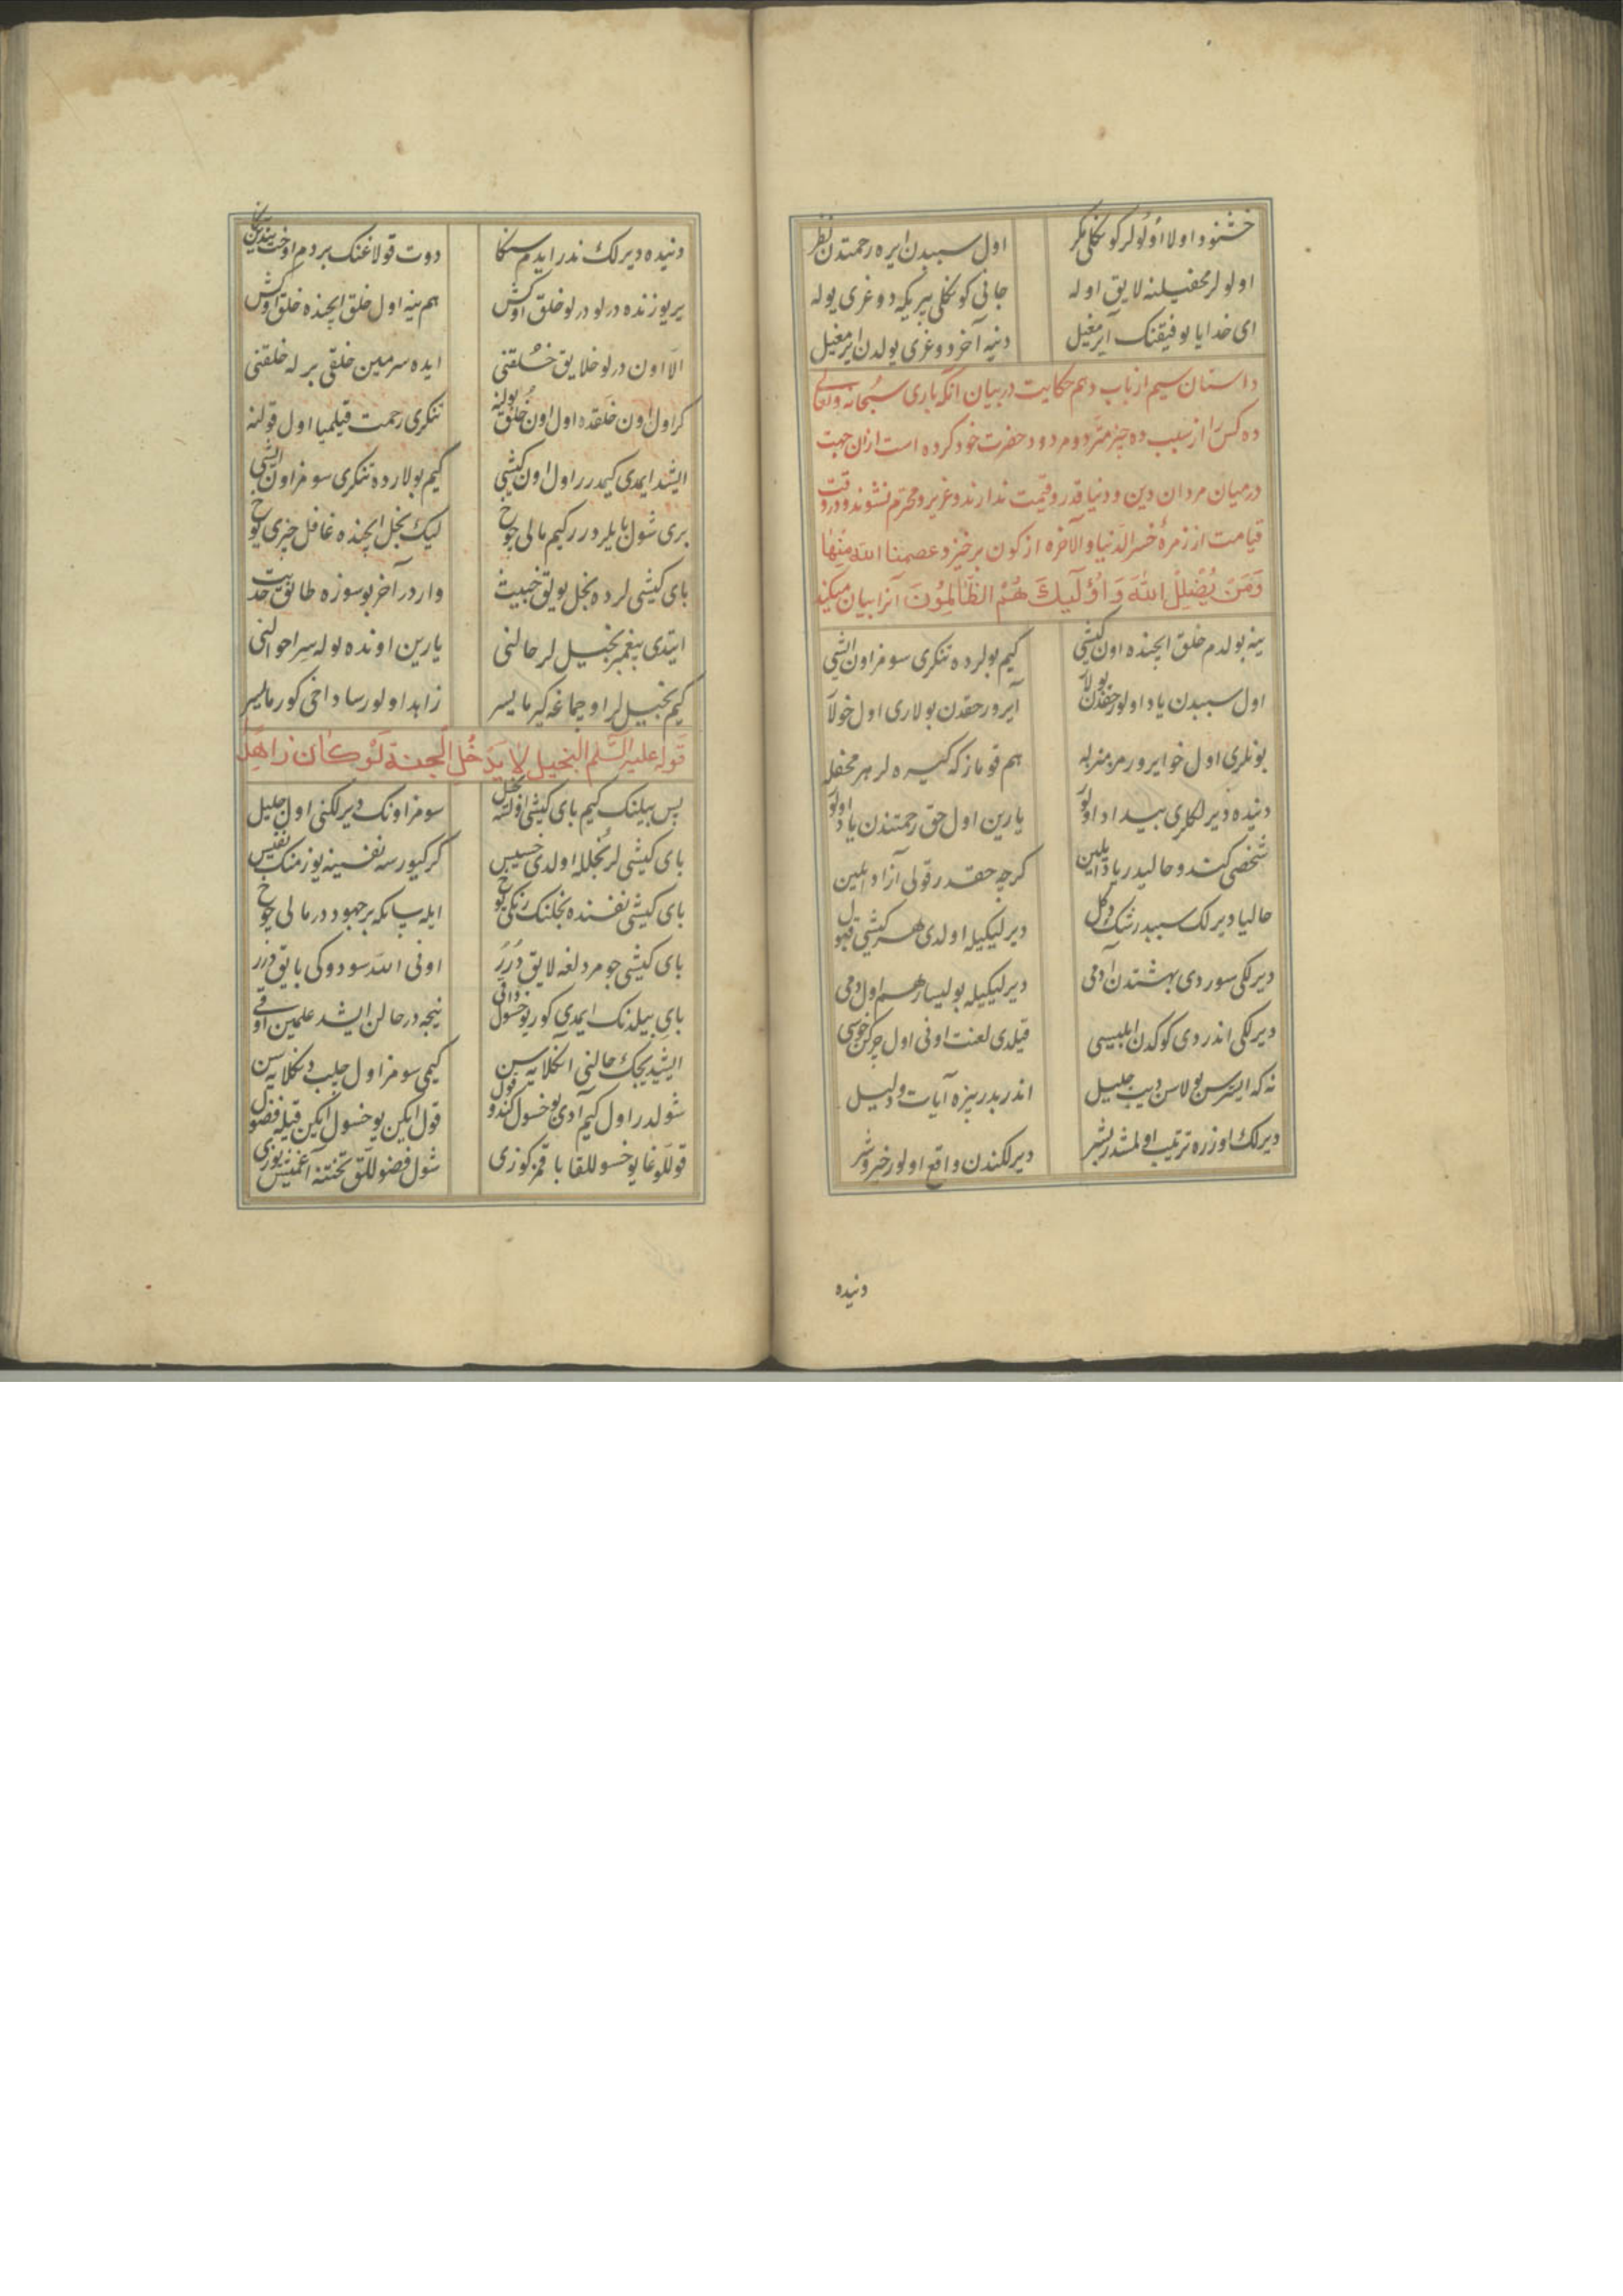 خشنود اولا اولولر کوکلی مکر اول سببدن ایره رحمتدن نظر
اولولر محفیلنه لایق اوله جانی کوکلی بیریکه دوغری یوله
ای خدایا توفیقنک آیرمغیل دنیه آخر دوغری یولدن ایرمغیل
داستان سیم از باب دهم حکایت در بیان آنکه باری سبحانه وتعالی
ده کس را از سبب ده چیز متردد و مردود حضرت خود کرده است از ان جهت
در میان مردان دین و دنیا قدر و قیمت ندارند و عزیز و محترم نشوند و در وقت
قیامت از زمرهٔ خسر الدنیا والآخره از کون برخیزد عصمنا الله منها
وَمَنْ يُضْلِلِ اللهُ وَ اُولَٓئِكَ هُمُ الظَّالِمُونَ آنرا بیان میکند
ینه بولدم خلق ایچنده اون کیشی کیم بولرده تنکری سومز اون ایشی
اول سببدن یاد اولور حقدن بولار آیرور حقدن بولاری اول خولار
بونلری اول خوایرور مرمنزله هم قومازکه کیره لر هر محفله
دنیده دیرلکلری بیداد اولور یارین اول حق رحمتندن یاد اولور
شخصی کندو حالیدر یاد ایلین کرچه حقدر قولی آزاد ایلین
حالیا دیرلک سببدر شک دکل دیرلیکیله اولدی هر کیشی قبول
دیرلکی سوردی بهشتدن آدمی دیرلیکیله بولیسار هم اول دمی
دیرلکی اندردی کوکدن ابلیسی قیلدی لعنت اونی اول چرکن خویی
نه که ایترسن بولاسن دیب جلیل اندر بدر بیزه آیات و دلیل
دیرلک اوزره ترتیب اولمشدر بشر دیرلکندن واقع اولور خیر و شر
دنیده
دنیده دیرلک ندر ایدم سنکا دوت قولاغنک بردم اوخت بندین یکا
یر یوزنده درلو درلو خلق اوکش هم ینه اول خلق ایچنده خلق اوکش
الا اون درلو خلایق خلقنی ایده سرمین خلقی برله خلقنی
کر اول اون خلقده اول اون خلق بولنه تنکری رحمت قیلمیا اول قولنه
ایشد ایمدی کیمدرر اول اون کیشی کیم بولارده تنکری سومز اون ایشی
بری شول بایلردرر کیم مالی چوخ لیک بخل ایچنده غافل خیری یوخ
بای کیشی لرده بخل بولق خبیث واردر آخر بو سوزه طابق حدیث
ایتدی پیغمبر بخیل لر حالنی یارین اونده بوله سر احوالنی
کیم بخیل لر اوچماغه کیرمایسر زاهد اولورسا داخی کورمایسر
قوله علیه السلم البخیل لا يَدْخُلُ الجنة لَوْ كان زاهِداً
پس بیلنک کیم بای کیشی اولسه بخیل سومز اونک دیرلکنی اول جلیل
بای کیشی لر بخلله اولدی خسیس کر کیورسه نفسینه یوز منک نفیس
بای کیشی نفسنده بخلنک رنکی یوخ ایله سانکه بر جهوددر مالی چوخ
بای کیشی جومردلغه لایق دُرَر اونی الله سودوکی بایق دُرر
بای بیلدنک ایمدی کور یوخسول دانی نیجه در حالن ایشد علمین اوقی
ایشیدیجک حالنی انکلایه سن کیمی سومز اول جلب دنکلایه سن
شولدر اول کیم آدی یوخسول کندو قول قول ایکن یوخسول ایکن قیله فضول
قوللوغا یوخسوللقا باقمز کوزی شول فضوللق تختنه آغمیش یوزی